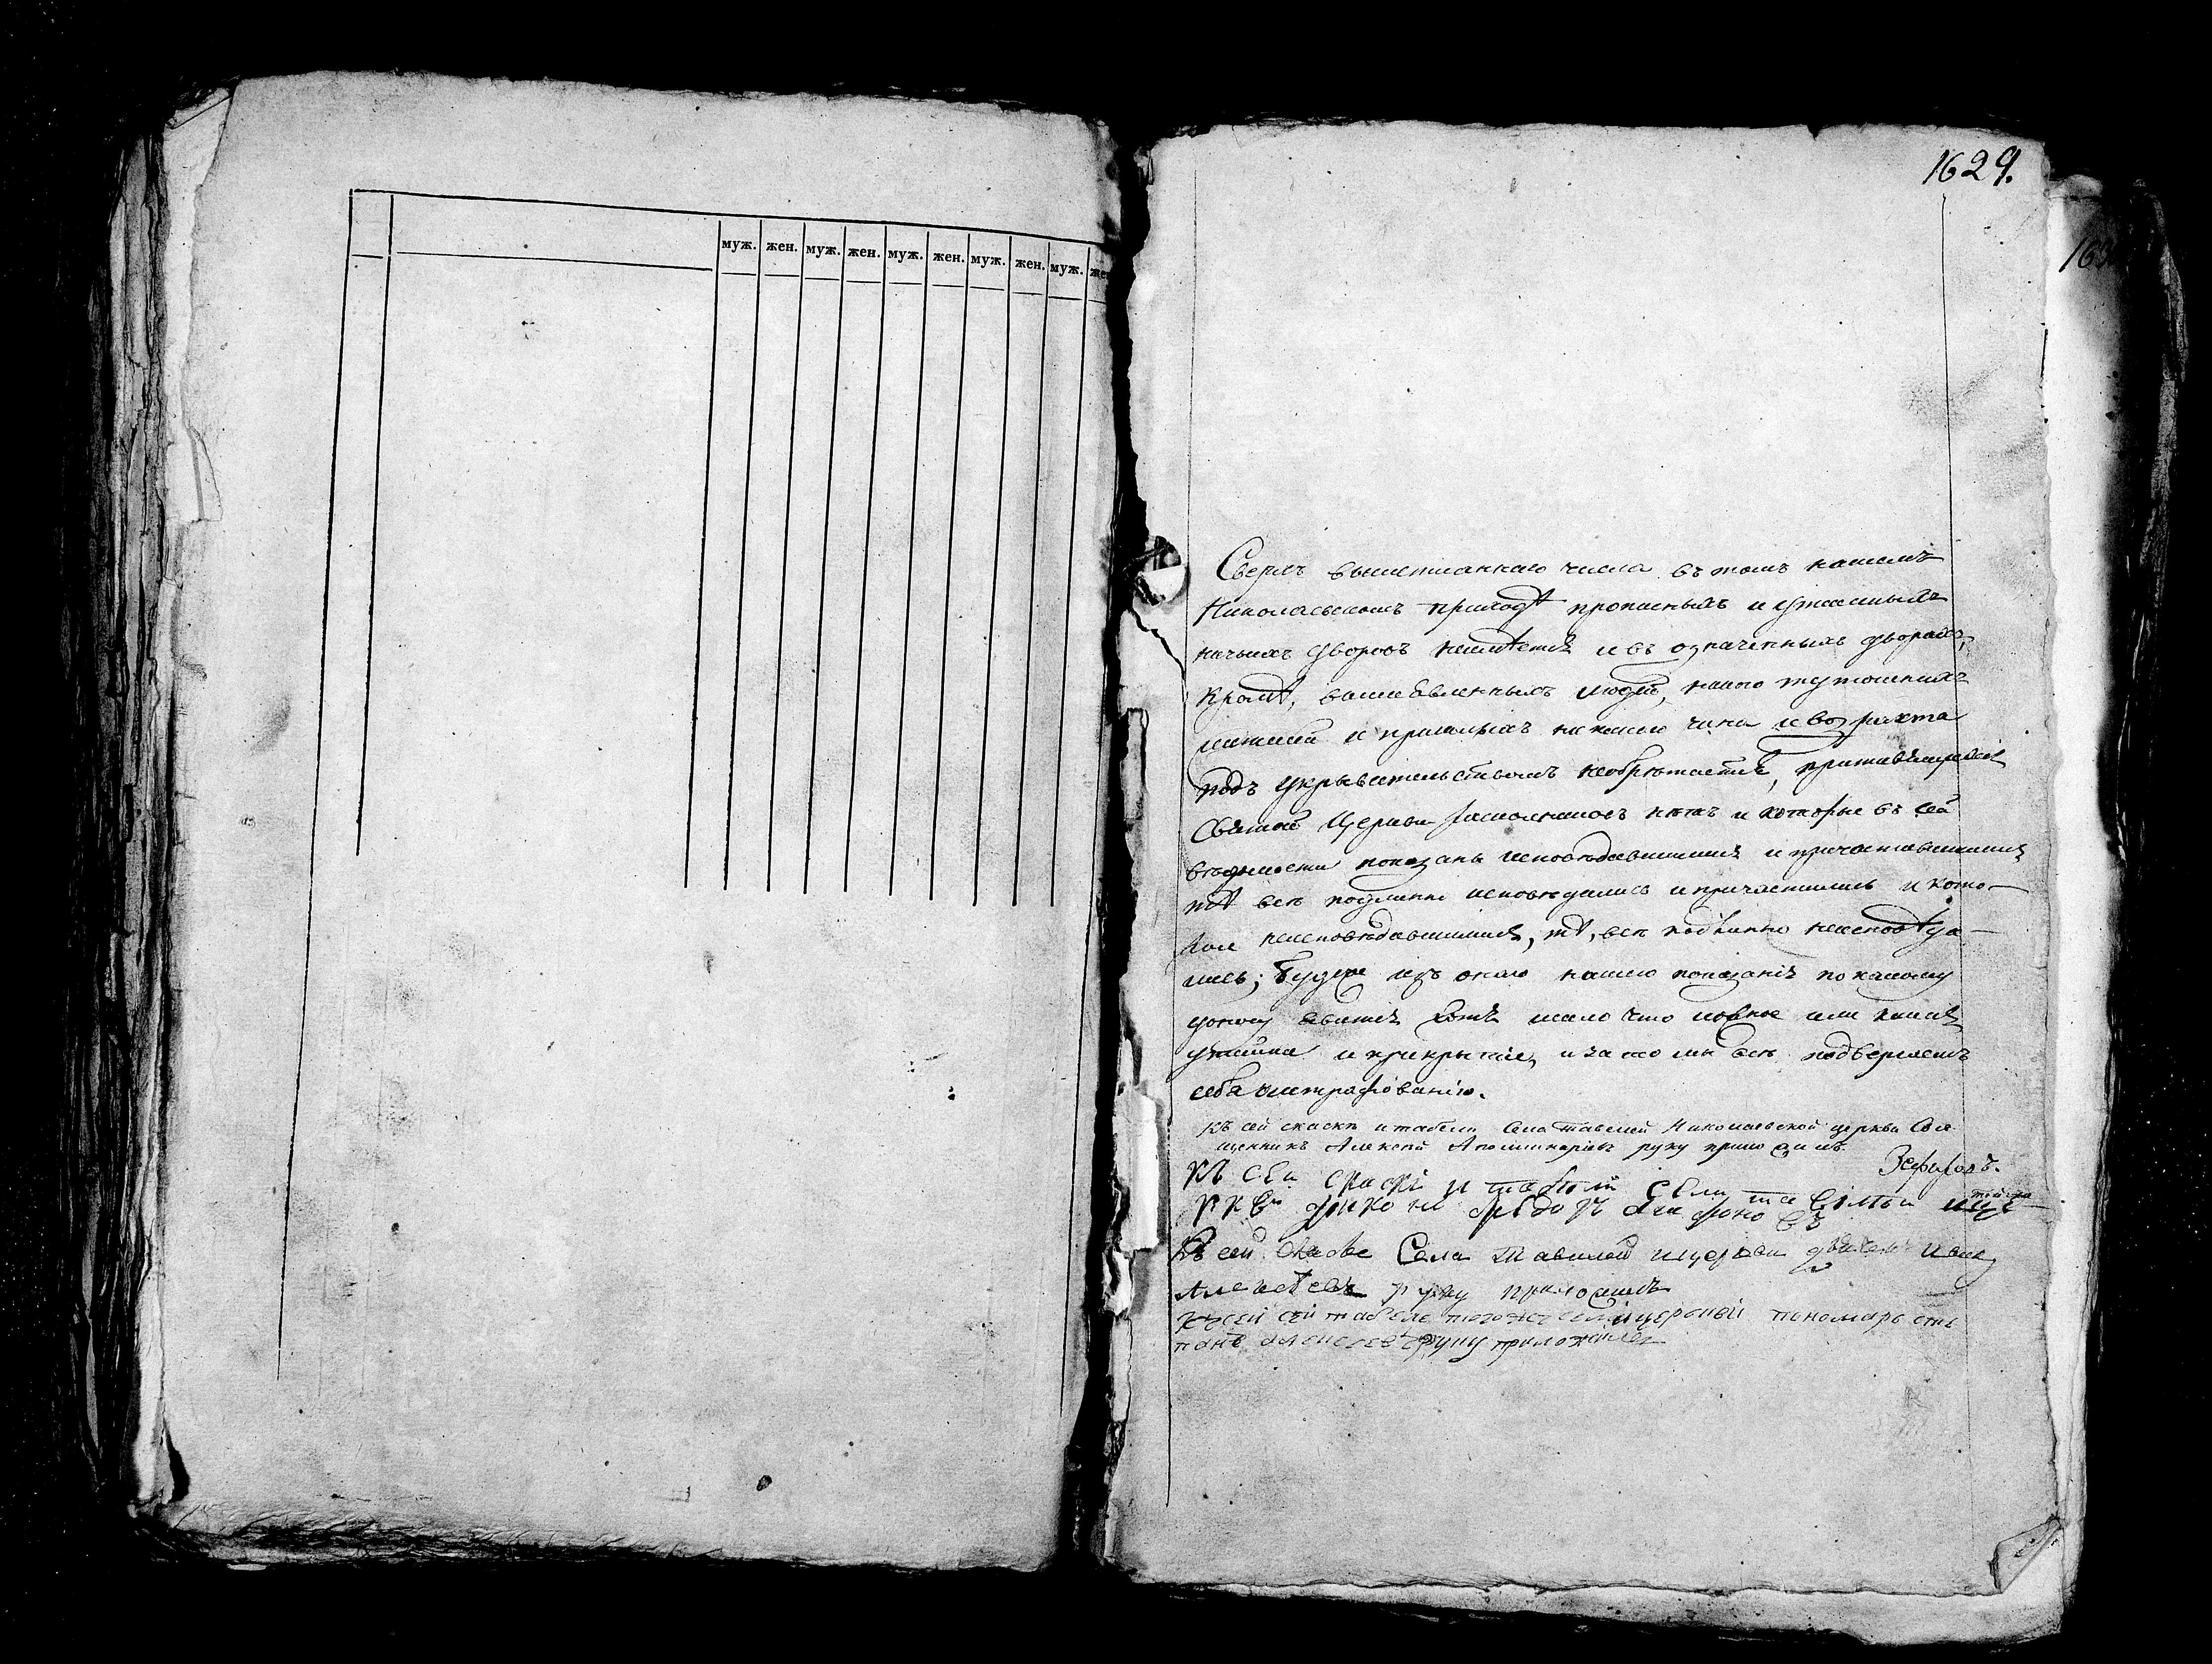 муж. жен. муж. жен. муж. жен. муж. жен. муж. же
1629.
163
Сверхъ вышеписаннаго числа въ томъ нашемъ
Николаевскомъ приходѣ прописныхъ и утаенныхъ
ничьихъ дворовъ неимѣется и въ означенныхъ дворахъ,
кромѣ, вышеявленныхъ людей, никого тутошнихъ
жителей и пришлыхъ никакого чина и возраста
подъ укрывательствомъ необрѣтается, противящихся
Святой Церкви раскольниковъ нѣтъ и которые въ сей
вѣдомости показаны исповѣдавшимися и причастившимися
тѣ всѣ подлинно исповѣдались и причастились и кото-
рые неисповѣдавшимися, тѣ, всѣ подлинно неисповѣда-
лись; Будеже изъ онаго нашего показанія по какому
доносу явится хотя мало что ложное или какая
утайка и прикрытіе, и за то мы всѣ подвергаемъ
себя штрафованію.
Къ сей скаскѣ и табели Села Николаевской церкви Свя-
щенникъ Алексей Аполинарьевъ руку приложилъ.
Зефировъ.
Къ сей скаскѣ и табели села
той же
ркви диконъ Федоръ Агафоновъ
Къ сей скаске Села и церкви дьячекъ Иванъ
Алексѣевъ руку приложилъ
Къ сей табеле тогожъ села и церквей пономарь сте
панъ алексеевъ руку приложилъ